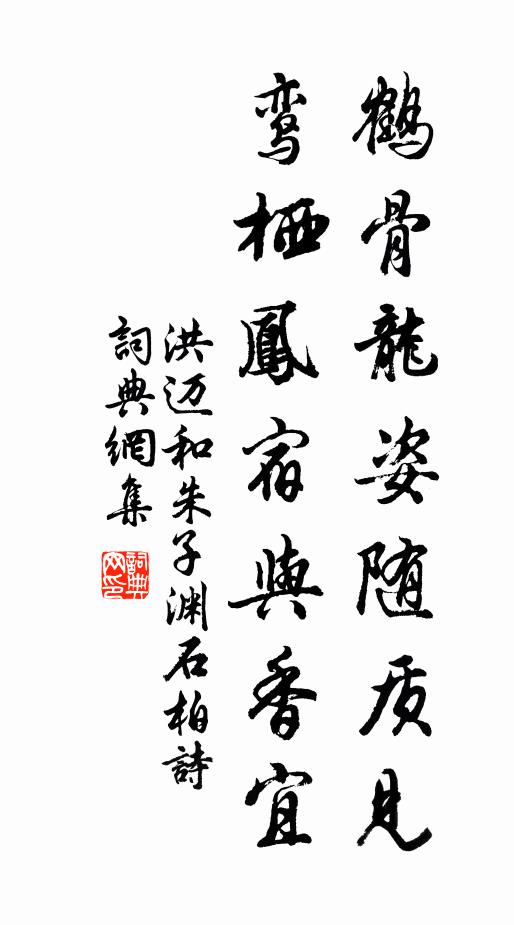 鶴骨龍姿随质見
鸾栖鳳宿與香宜
洪迈和朱子渊石柏詩
詞典網集
詞典网印